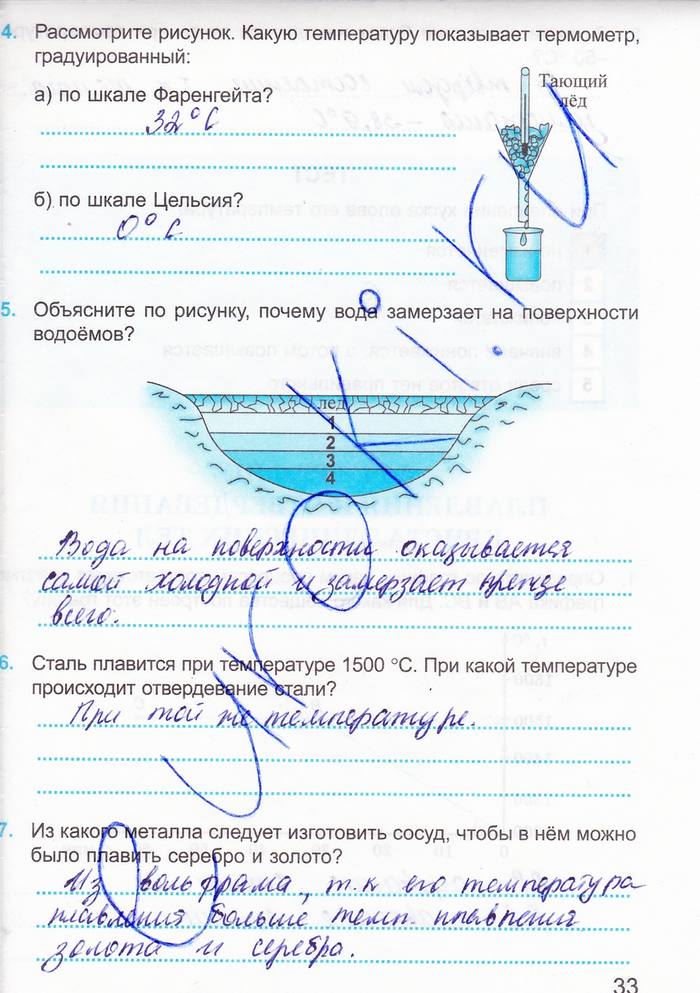 4. Рассмотрите рисунок. Какую температуру показывает термометр,
градуированный:
а) по шкале Фаренгейта?
32°С
Тающий
лёд
б) по шкале Цельсия?
0°С
5. Объясните по рисунку, почему вода замерзает на поверхности
водоёмов?
лед
1
2
3
4
Вода на поверхности оказывается
самой холодной и замерзает прежде
всего.
6. Сталь плавится при температуре 1500 °С. При какой температуре
происходит отвердевание стали?
При той же температуре.
7. Из какого металла следует изготовить сосуд, чтобы в нём можно
было плавить серебро и золото?
Из вольфрама, т.к его температура
плавления больше темп. плавления
золота и серебра.
33